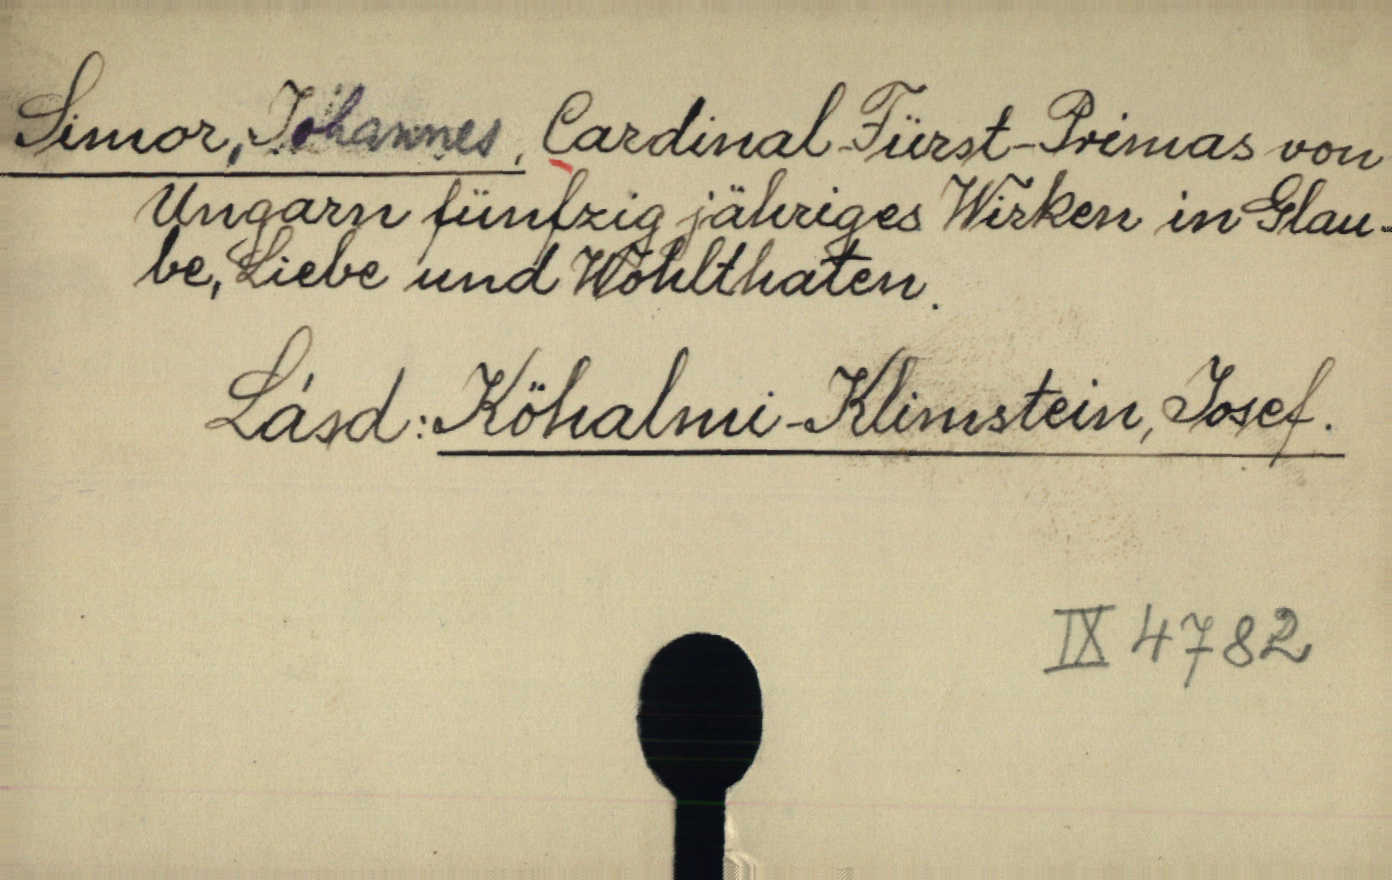 Simor, Johannes, Cardinal-Fürst-Primas von
Ungarn fünfzig jähriges Wirken in Glau-
be, Liebe und Wohlthaten.
Lásd: Köhalmi-Klimstein, Josef.
IX 4782